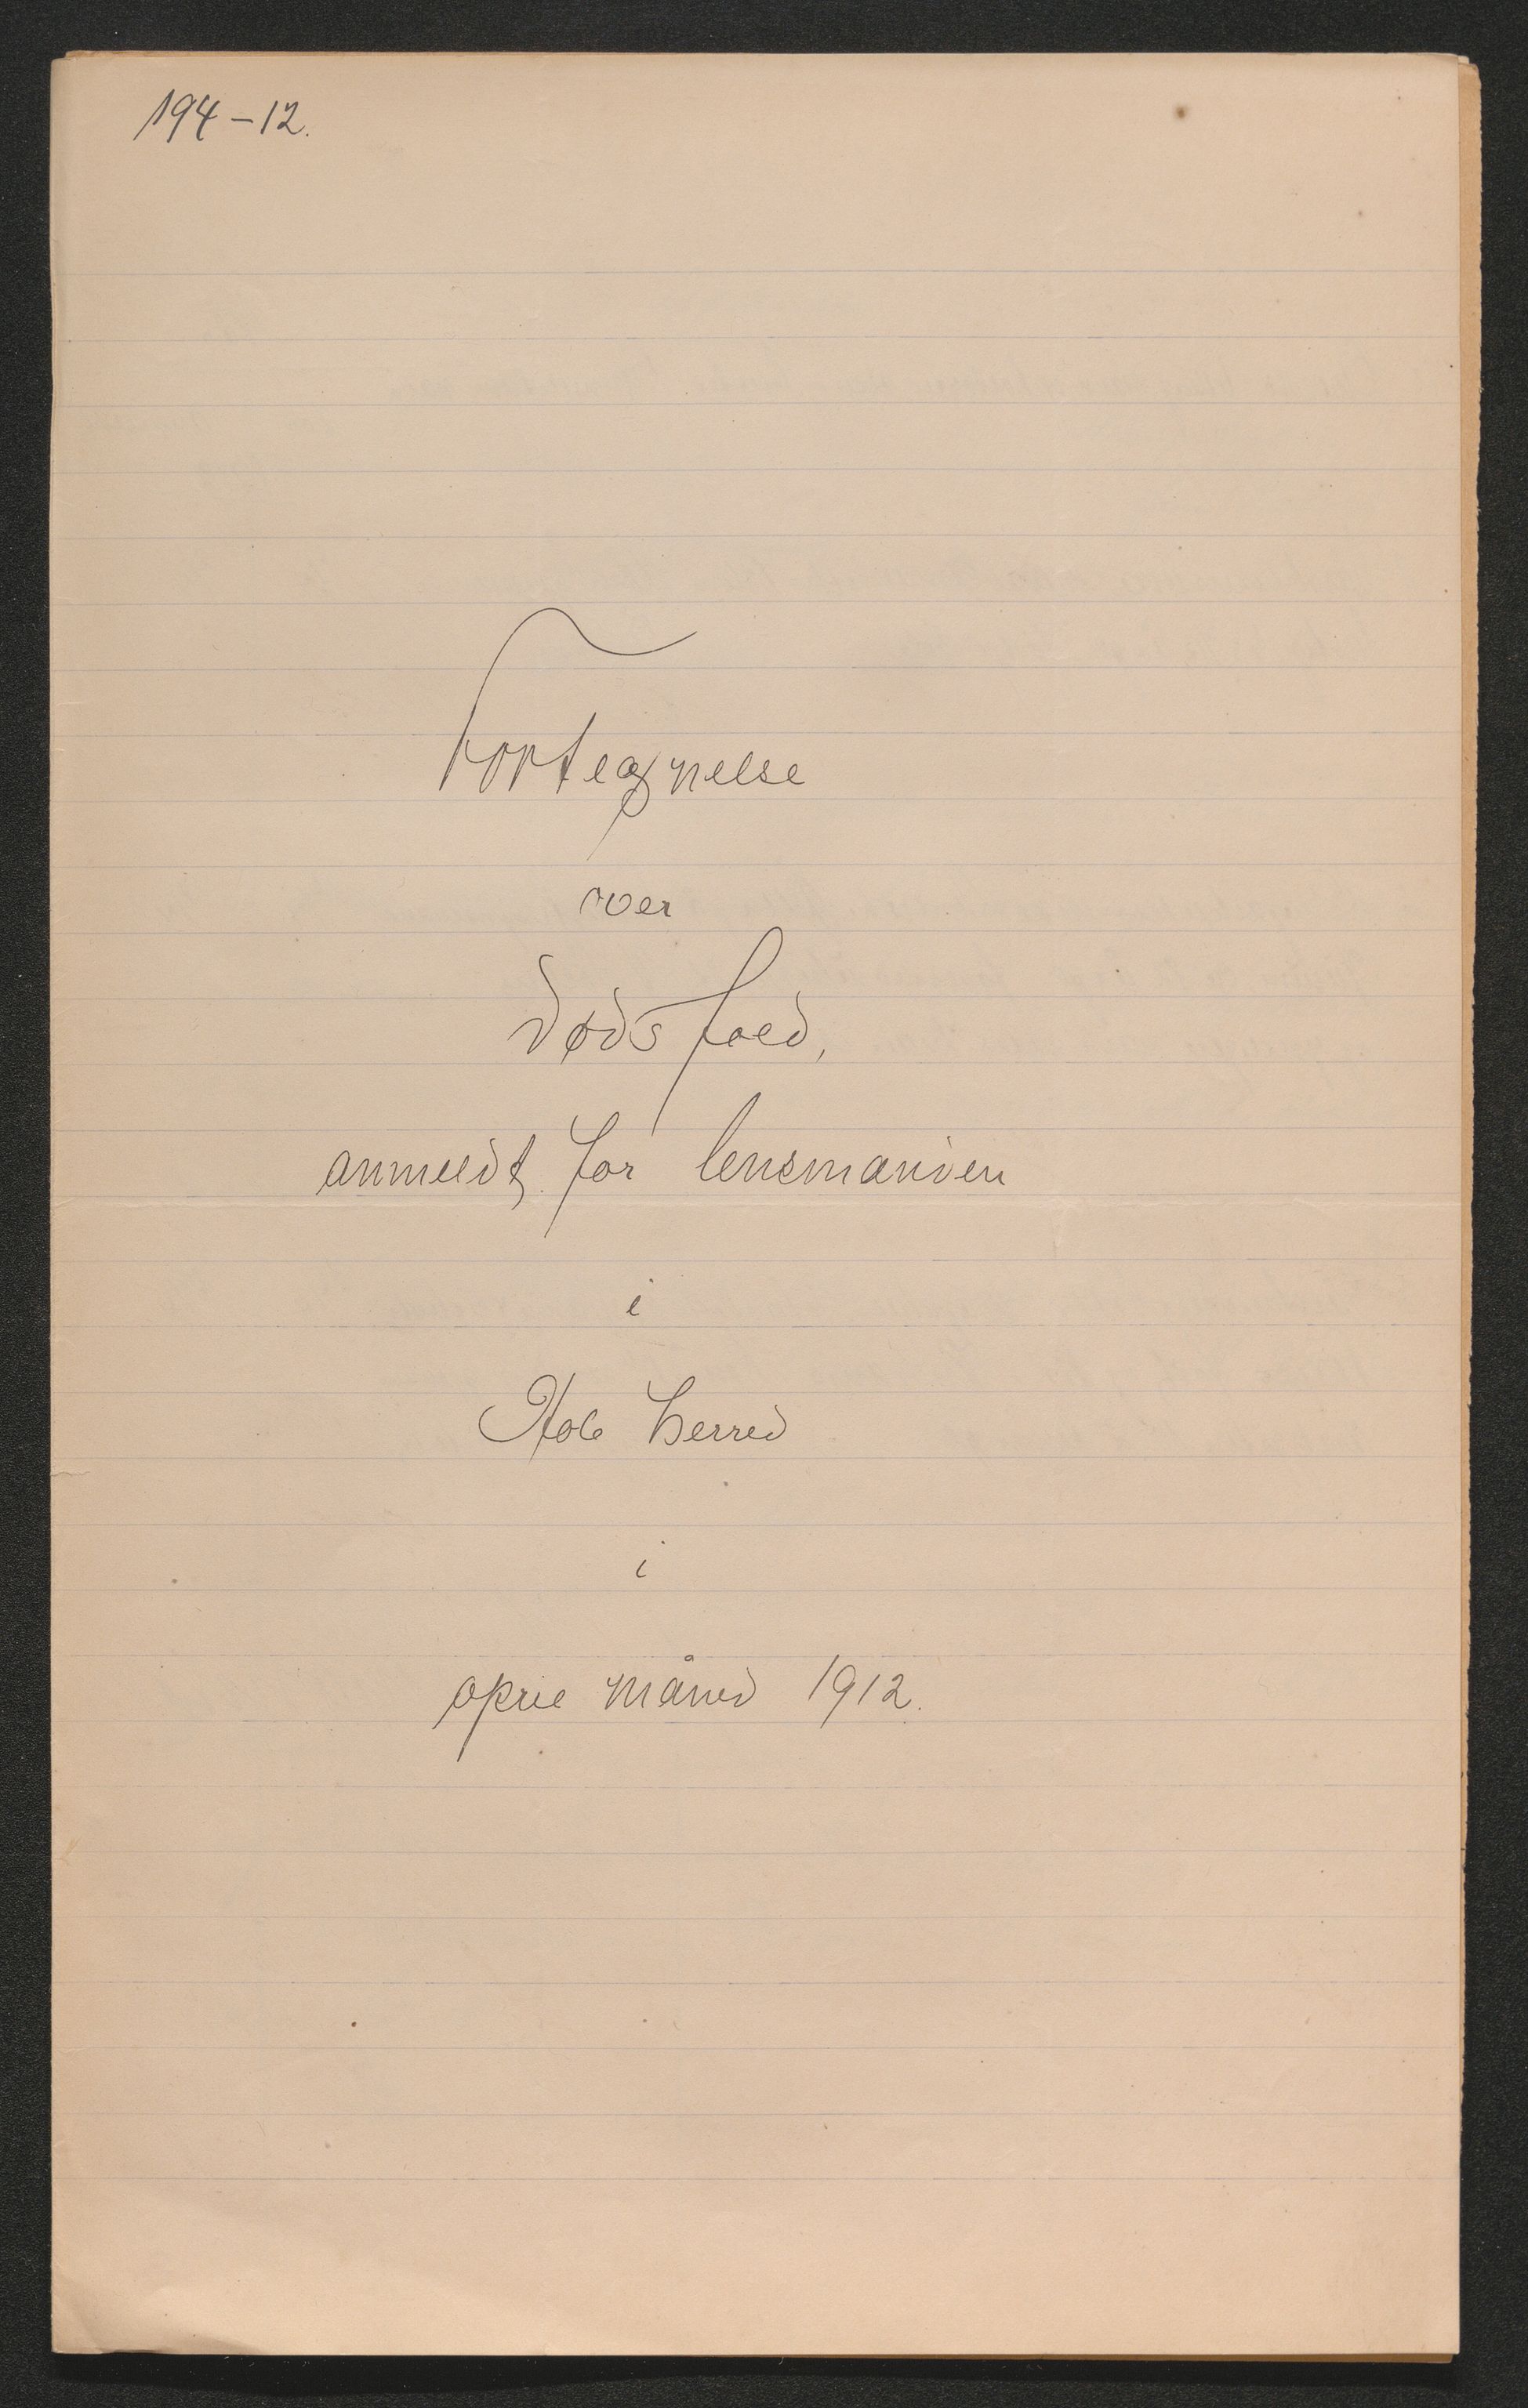 194-12.
Fortegnelse
over
dødsfald,
anmeldt for lensmanden
i
Hole herred
i
april måned 1912.